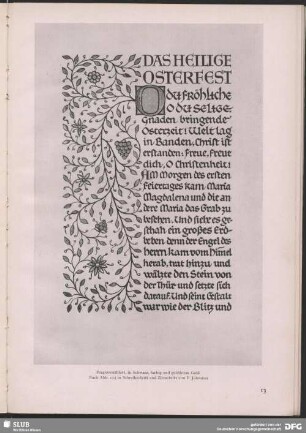 DAS HEILIGE
OSTERFEST
O du fröhliche
O du selige
Gnaden bringende
Osterzeit! Welt lag
in Banden, Christ ist
erstanden: Freue, freue
dich, O Christenheit!
AM Morgen des ersten
Feiertages kam Maria
Magdalena und die an
dere Maria das Grab zu
besehen. Und siehe es ge-
schah ein großes Erd-
beben denn der Engel des
Herrn kam vom Himel
herab, trat hinzu und
wälzte den Stein von
der Thür und setzte sich
darauf. Und seine Gestalt
war wie der Blitz und
in Schwarz, farbig und
Nach
13
SLUB
DFG